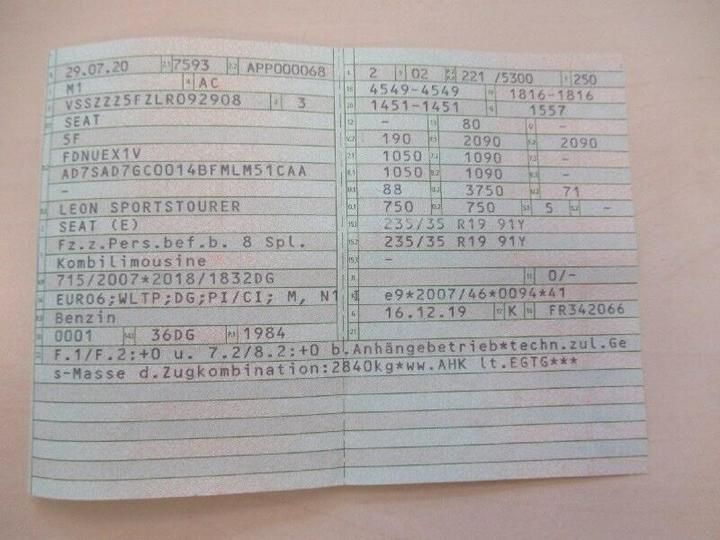 29.07.20 7593 APP000068
M1 AC
VSSZZZ5FZLR092908 3
SEAT
5F
FDNUEX1V
AD7SAD7GC0014BFMLM51CAA
-
LEON SPORTSTOURER
SEAT (E)
Fz.z.Pers.bef.b. 8 Spl.
Kombilimousine
715/2007*2018/1832DG
EURO6;WLTP;DG;PI/CI; M, N1
Benzin
0001 36DG 1984
2 02 221 /5300 250
4549-4549 1816-1816
1451-1451 1557
- 80 -
190 2090 2090
1050 1090 -
1050 1090 -
88 3750 71
750 750 5 -
235/35 R19 91Y
235/35 R19 91Y
-
0/-
e9*2007/46*0094*41
16.12.19 K FR342066
F.1/F.2:+0 u. 7.2/8.2:+0 b.Anhängebetrieb*techn.zul.Ge
s-Masse d.Zugkombination:2840kg*ww.AHK lt.EGTG***